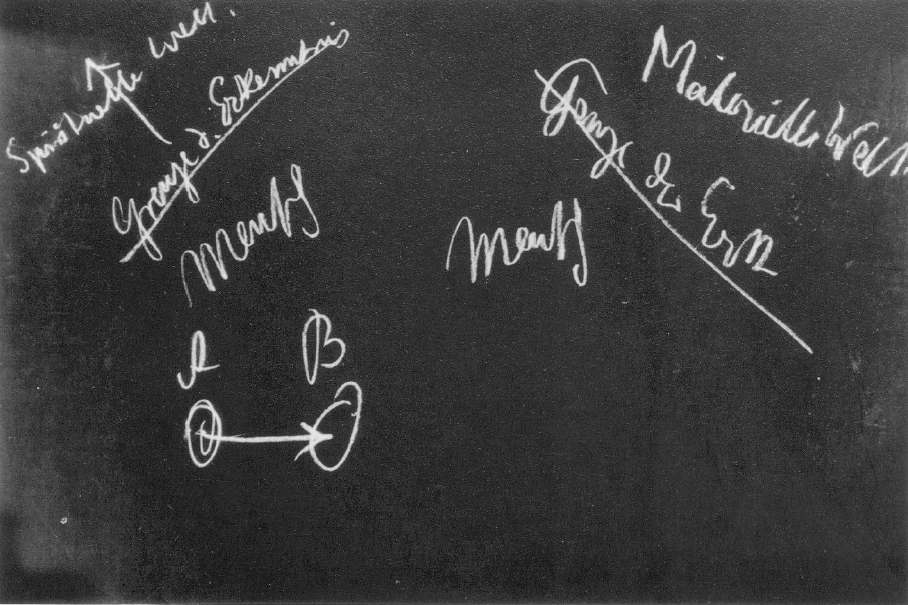 Spirituelle Welt.
Grenze d. Erkenntnis
Mensch
A B
Mensch
Materielle Welt
Grenze der